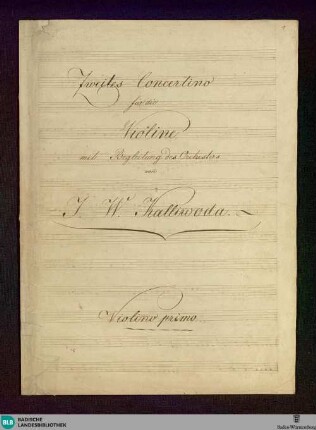 Zweites Concertino
für die
Violine
mit Begleitung des Orchesters
von
J. W. Kalliwoda.
Violino primo.
BLB BADISCHE
LANDESBIBLIOTHEK
Baden-Württemberg